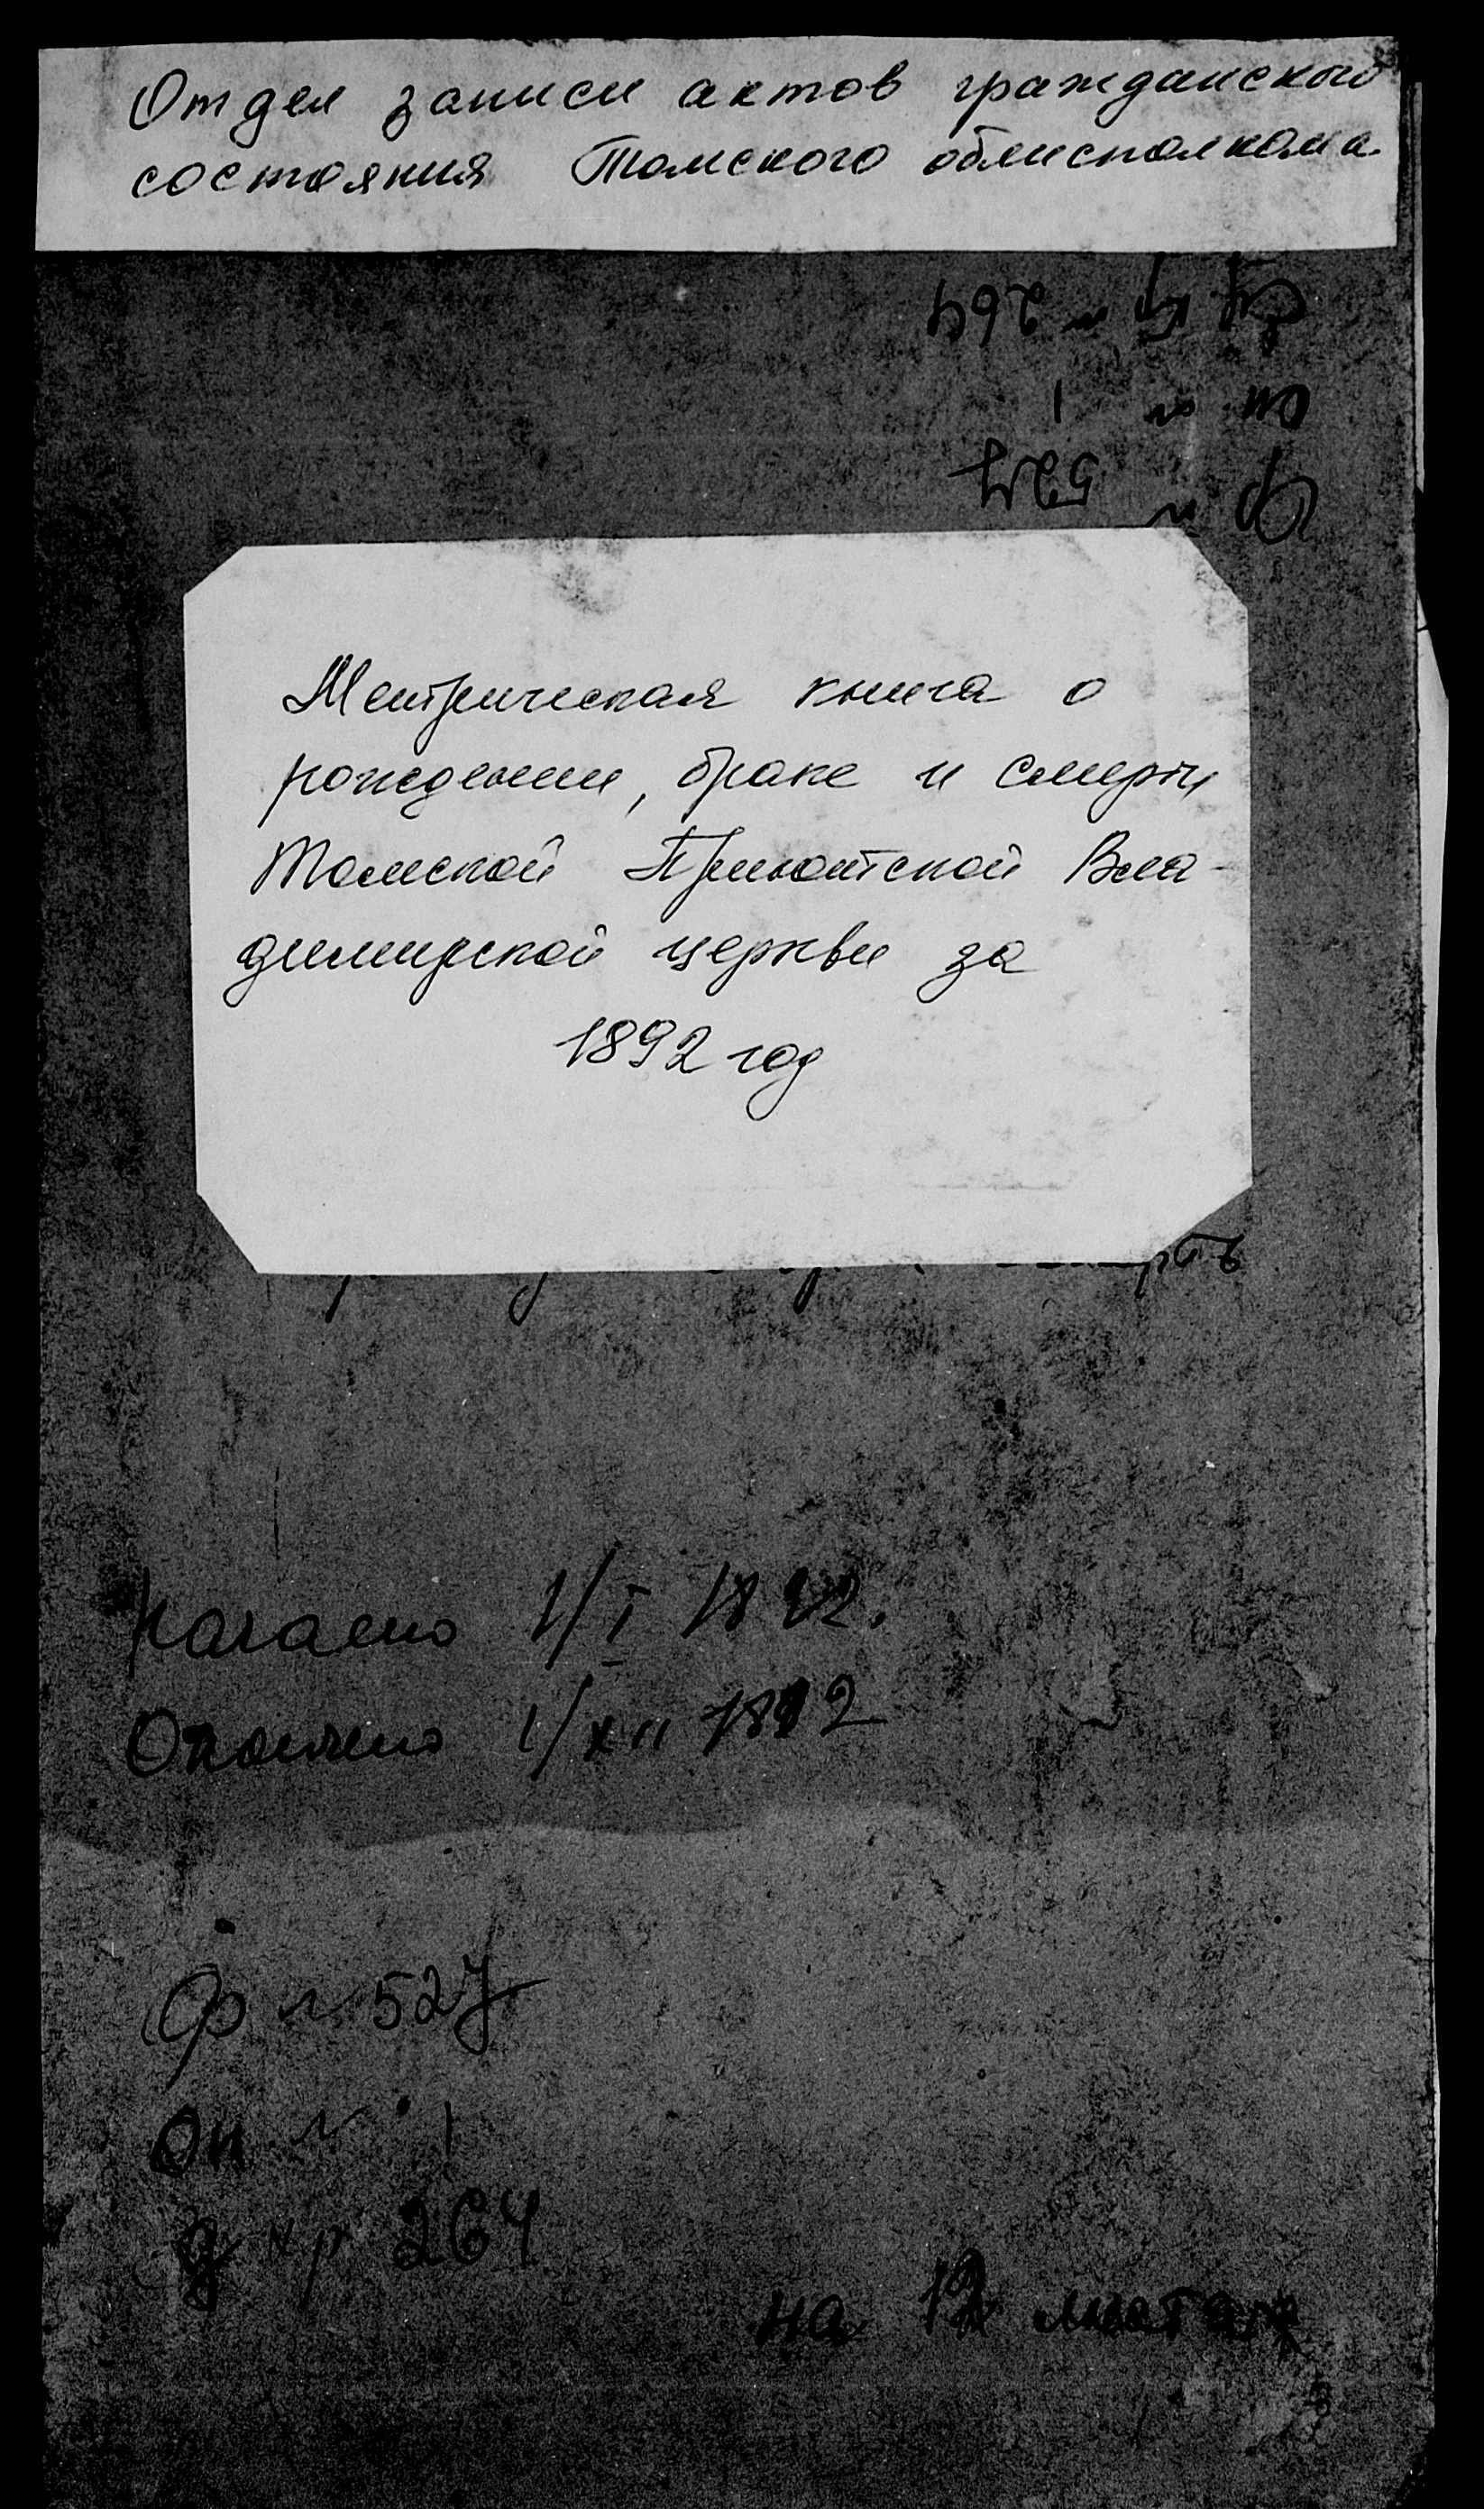 Отдел записи актов гражданского
состояния Томского облисполкома.
Ед хр № 264
оп № 1
Ф № 527
Метрическая книга о
рождении, браке и смерти
Томской Приютской Вла-
димирской церкви за
1892 год
Начато 1/I 1892.
Окончено 1/XII 1892
Ф № 527
Оп № 1
д хр 264
на 12 листах